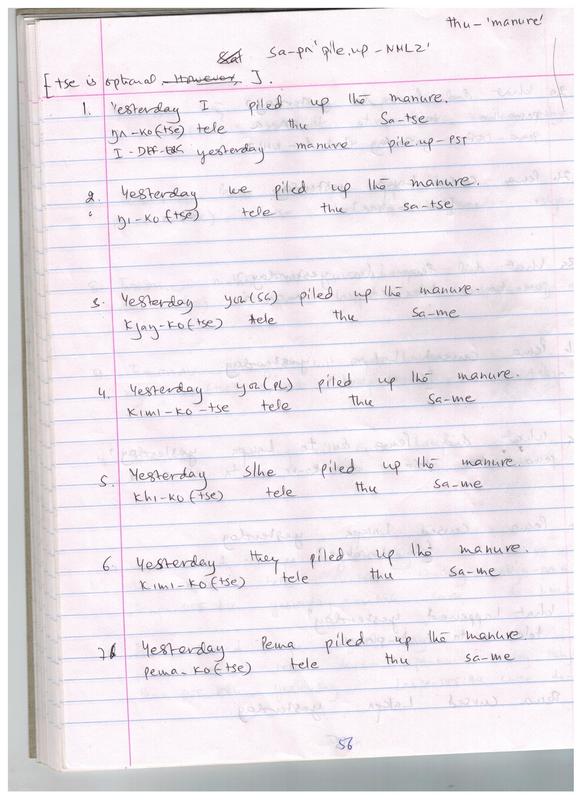 thu - 'manure'
sa-pa 'pile.up - NMLZ'
[ tse is optional However, ].
1. Yesterday I piled up the manure.
ŋʌ-ko(tse) tele thu sa-tse
I-DEF-ERG yesterday manure pile.up-PST
2. Yesterday we piled up the manure.
ŋı-ko(tse) tele thu sa-tse
3. Yesterday you(SG) piled up the manure.
kjay-ko(tse) tele thu sa-me
4. Yesterday you(PL) piled up the manure.
kımı-ko-tse tele thu sa-me
5. Yesterday s/he piled up the manure.
khı-ko(tse) tele thu sa-me
6. Yesterday they piled up the manure.
kımı-ko(tse) tele thu sa-me
7. Yesterday Pema piled up the manure.
pema-ko(tse) tele thu sa-me
56